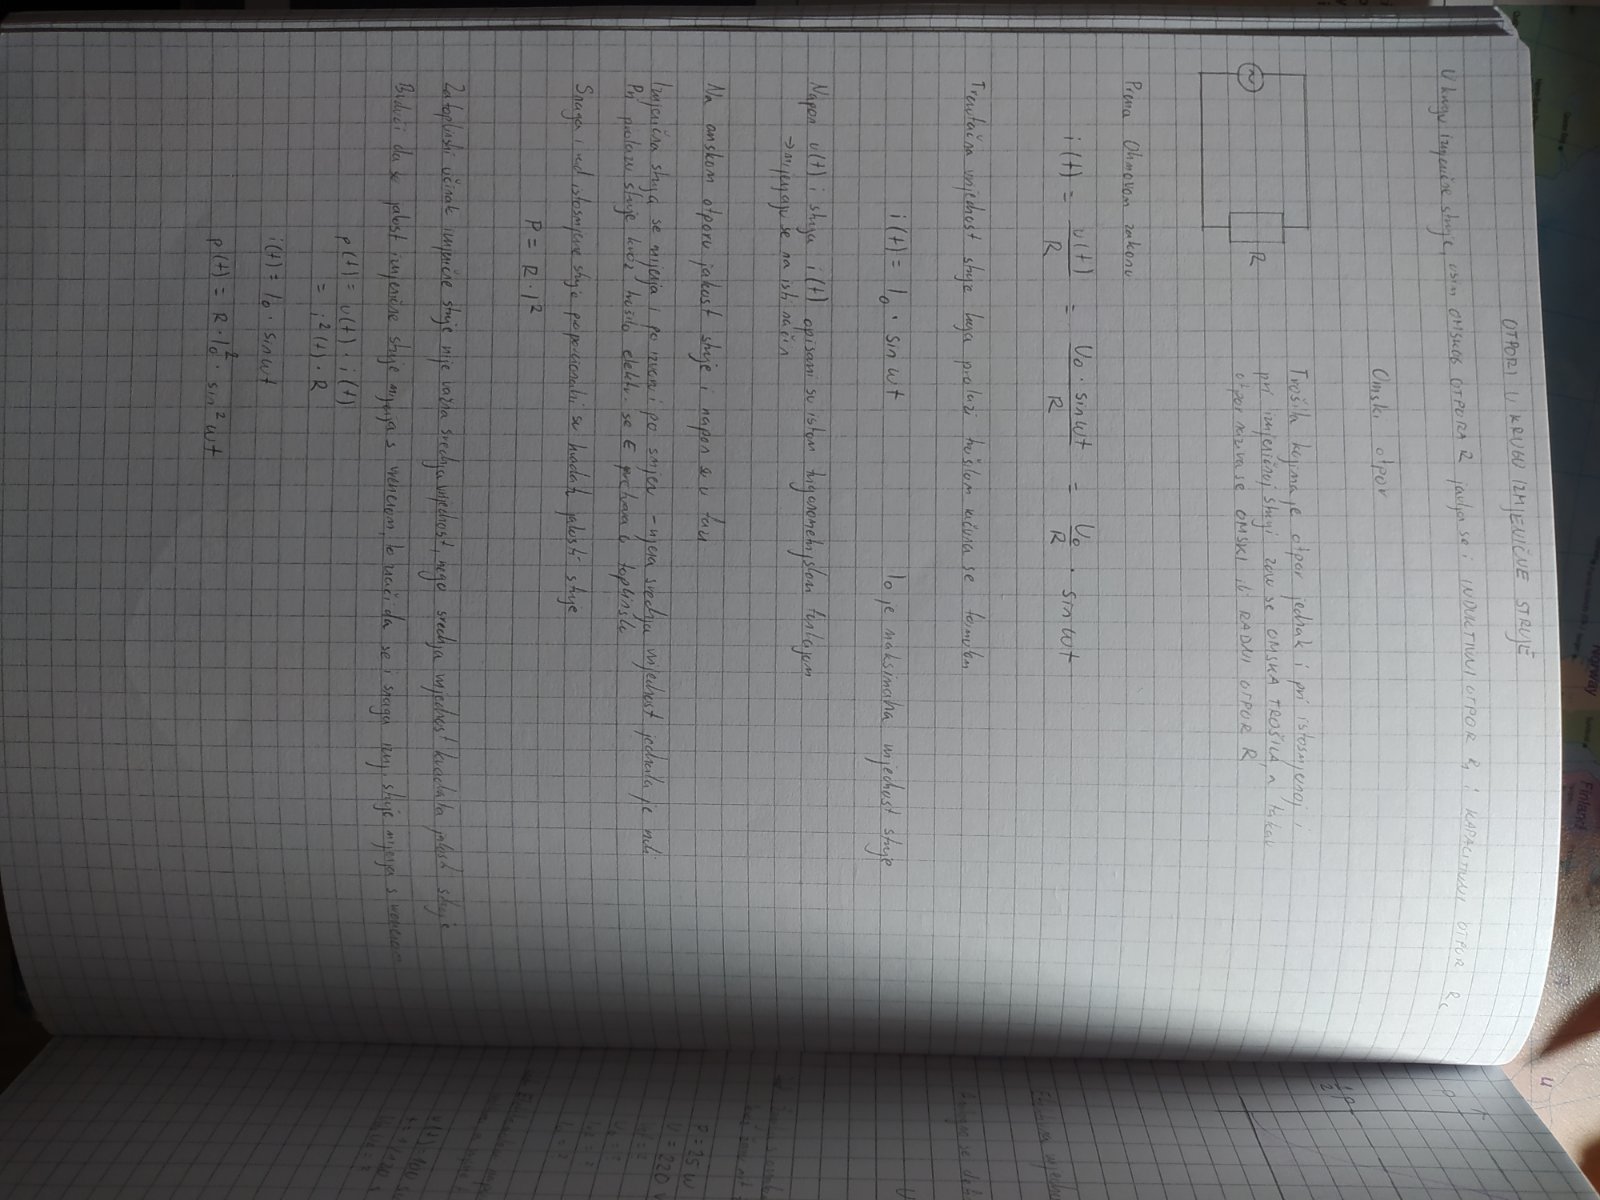 OTPORI U KRUGU IZMJENIČNE STRUJE
U krugu izmjenične struje, osim OMSKOG OTPORA R javlja se i INDUKTIVNI OTPOR RL i KAPACITIVNI OTPOR RC
Omski otpor
R
Trošila kojima je otpor jednak i pri istosmjernoj i
pri izmjeničnoj struji zovu se OMSKA TROŠILA, a takav
otpor naziva se OMSKI ili RADNI OTPOR R
Prema Ohmovom zakonu
i(t) = u(t)/R = U0 · sin wt/R = U0/R · sin wt
Trenutačna vrijednost struje koja prolazi trošilom računa se formulom
i(t) = I0 · sin wt I0 je maksimalna vrijednost struje
Napon u(t) i struja i(t) opisani su istom trigonometrijskom funkcijom
→ mijenjaju se na isti način
Na omskom otporu jakost struje i napon su u fazi
Izmjenična struja se mijenja i po iznosu i po smjeru - njena srednja vrijednost jednaka je nuli
Pri prolazu struje kroz trošilo elektr. se E pretvara u toplinsku
Snaga i rad istosmjerne struje proporcionalni su kvadratu jakosti struje
P = R · I²
Za toplinski učinak izmjenične struje nije važna srednja vrijednost, nego srednja vrijednost kvadrata jakosti struje
Budući da se jakost izmjenične struje mijenja s vremenom, to znači da se i snaga izmj. struje mijenja s vremenom
p(t) = u(t) · i(t)
= i²(t) · R
i(t) = I0 · sin wt
p(t) = R · I0² · sin² wt
P = 25 W
U = 220 V
Norway
Finland